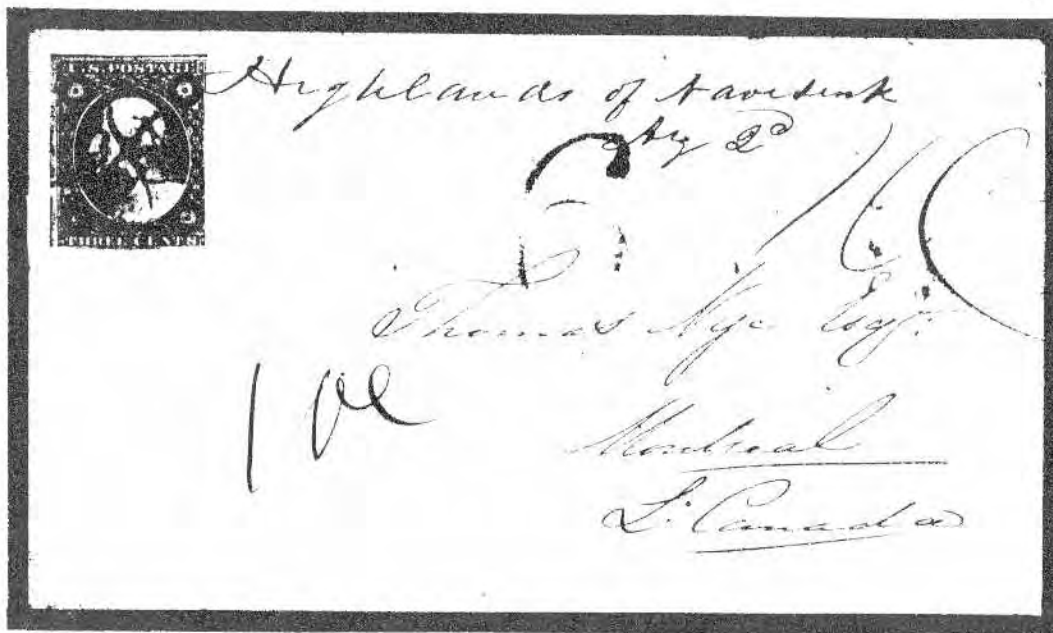 U.S. POSTAGE
THREE CENTS
Highlands of Navisink
Aug 2d
Thomas Nye Esqr.
Montreal
L. Canada